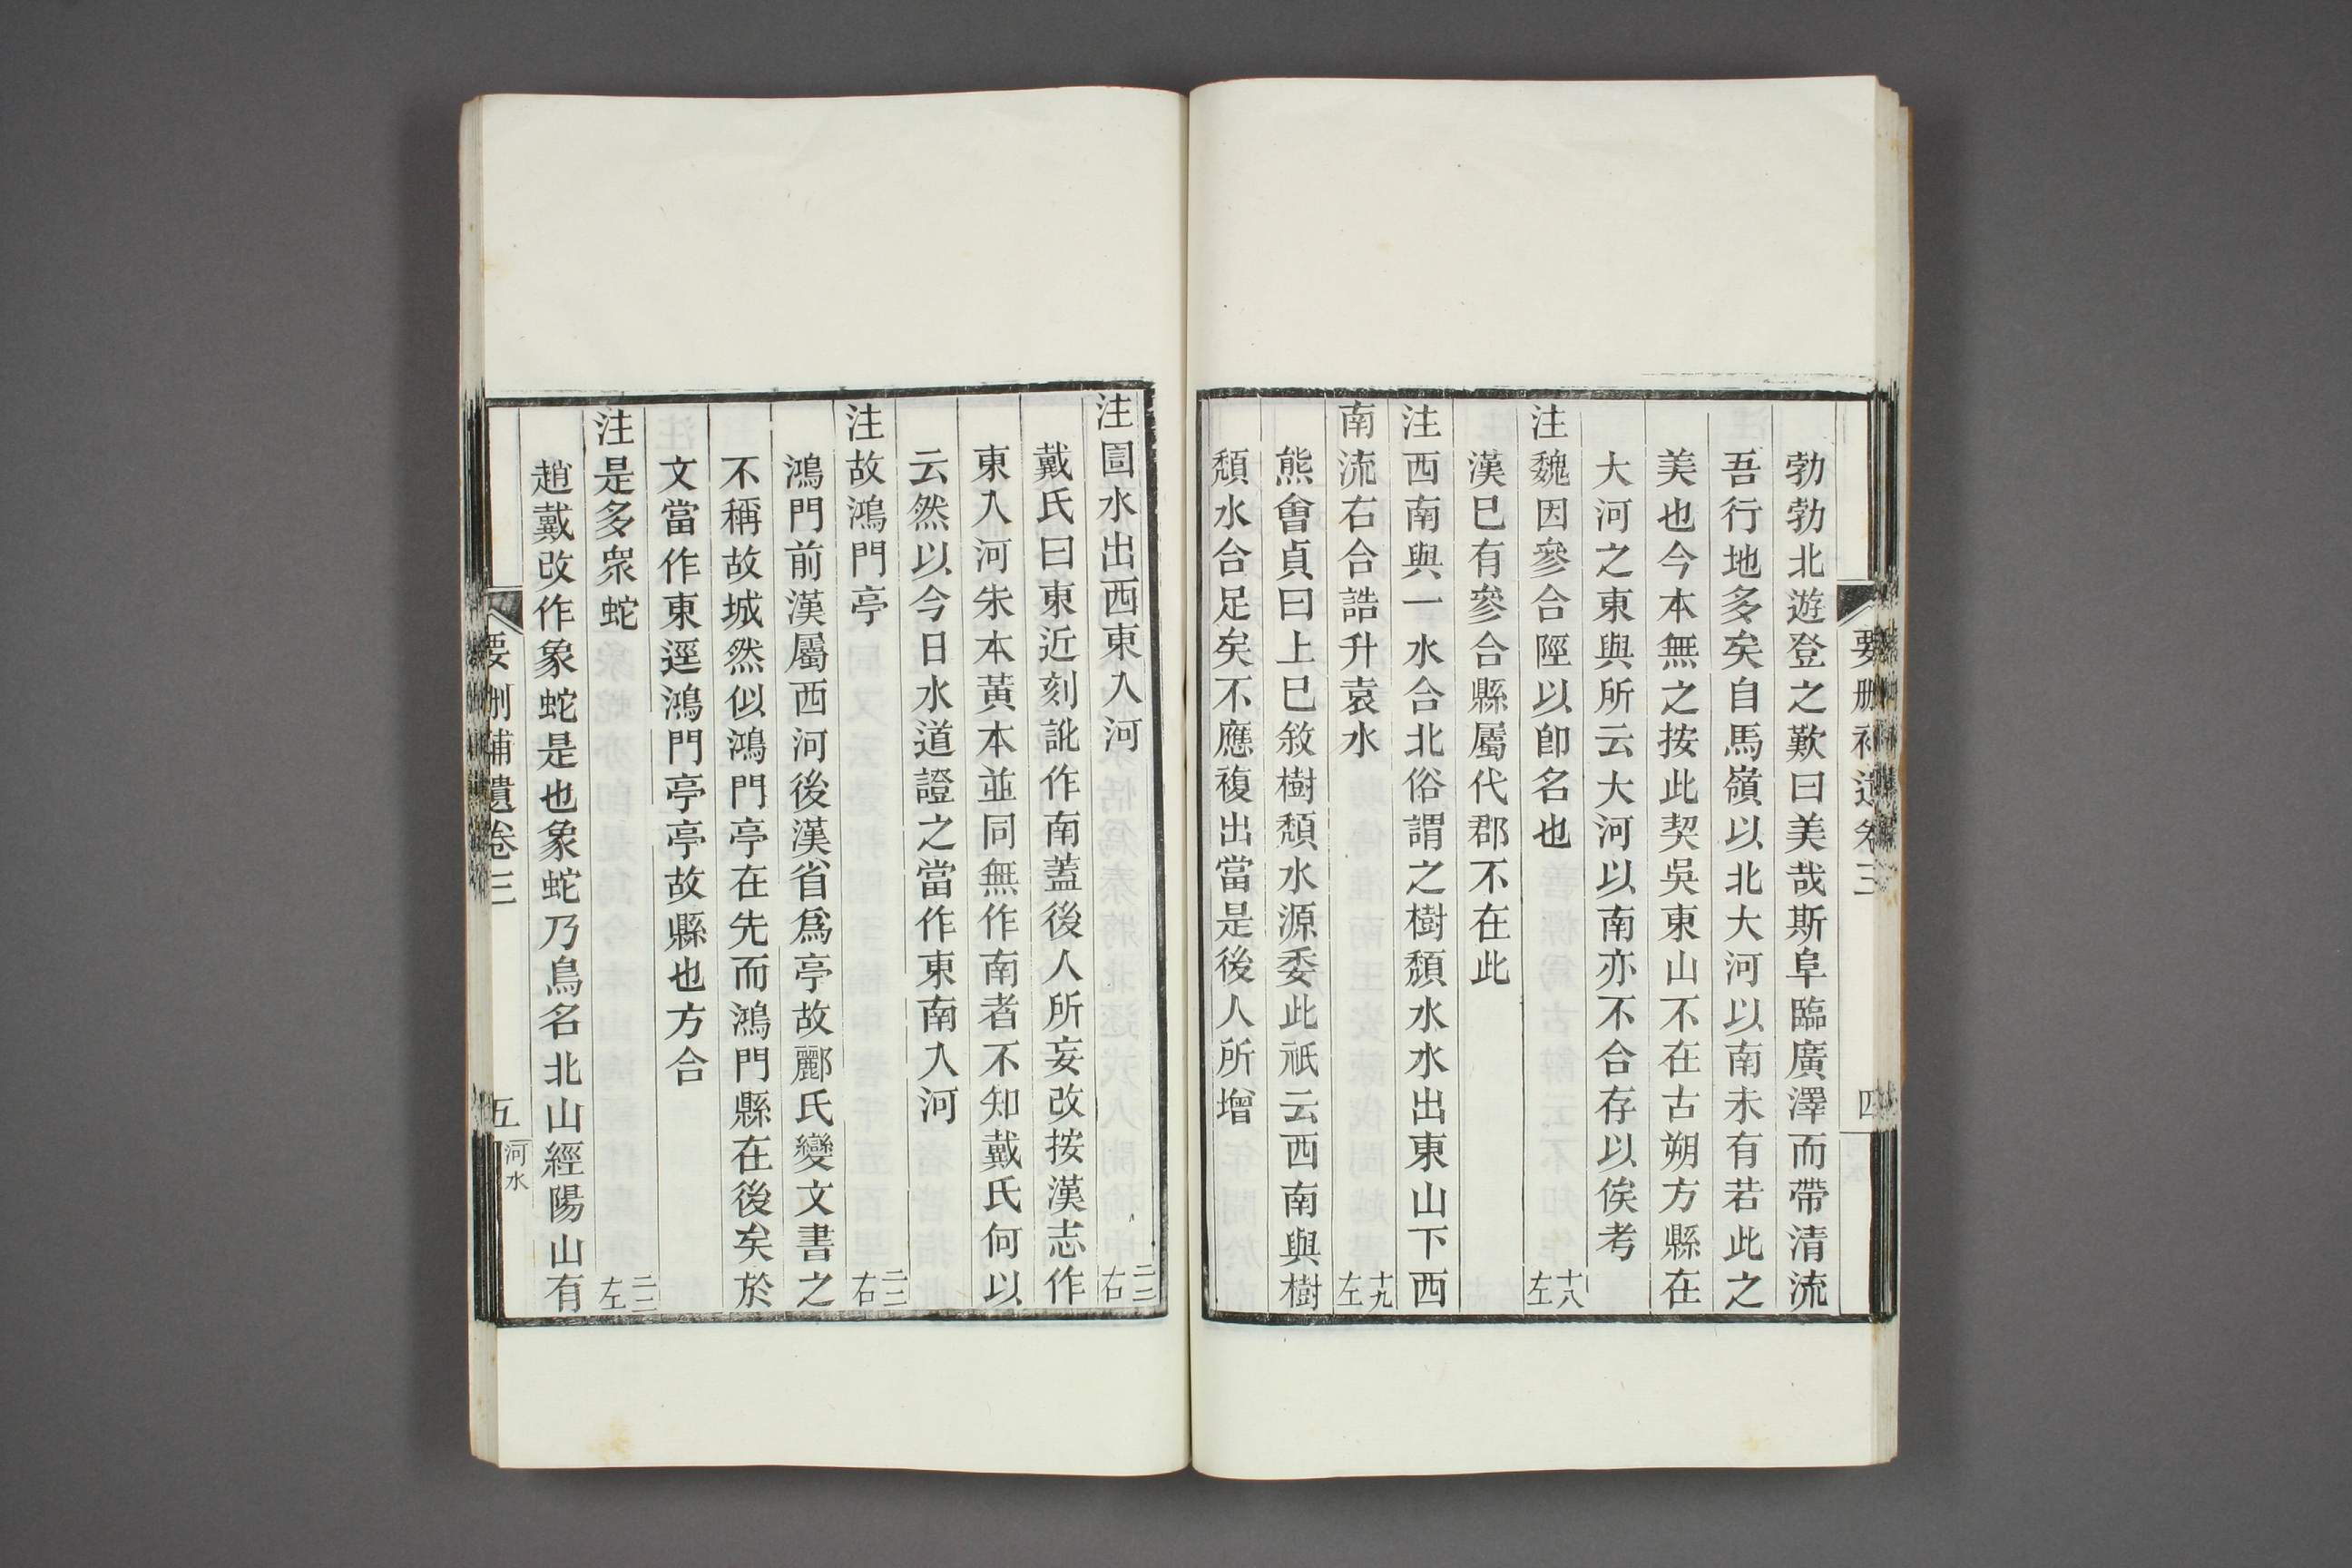 要刪補遺卷三 四
勃勃北遊登之歎曰美哉斯阜臨廣澤而帶清流
吾行地多矣自馬嶺以北大河以南未有若此之
美也今本無之按此契吳東山不在古朔方縣在
大河之東與所云大河以南亦不合存以俟考
注魏因參合陘以卽名也 十八左
漢巳有參合縣屬代郡不在此
注西南與一水合北俗謂之樹頹水水出東山下西
南流右合誥升袁水 十九左
熊會貞曰上巳敘樹頹水源委此祇云西南與樹
頹水合足矣不應複出當是後人所增
注圁水出西東入河 二三右
戴氏曰東近刻訛作南蓋後人所妄改按漢志作
東入河朱本黃本並同無作南者不知戴氏何以
云然以今日水道證之當作東南入河
注故鴻門亭 二三右
鴻門前漢屬西河後漢省爲亭故酈氏變文書之
不稱故城然似鴻門亭在先而鴻門縣在後矣於
文當作東逕鴻門亭亭故縣也方合
注是多衆蛇 二三左
趙戴改作象蛇是也象蛇乃鳥名北山經陽山有
要刪補遺卷三 五 河水